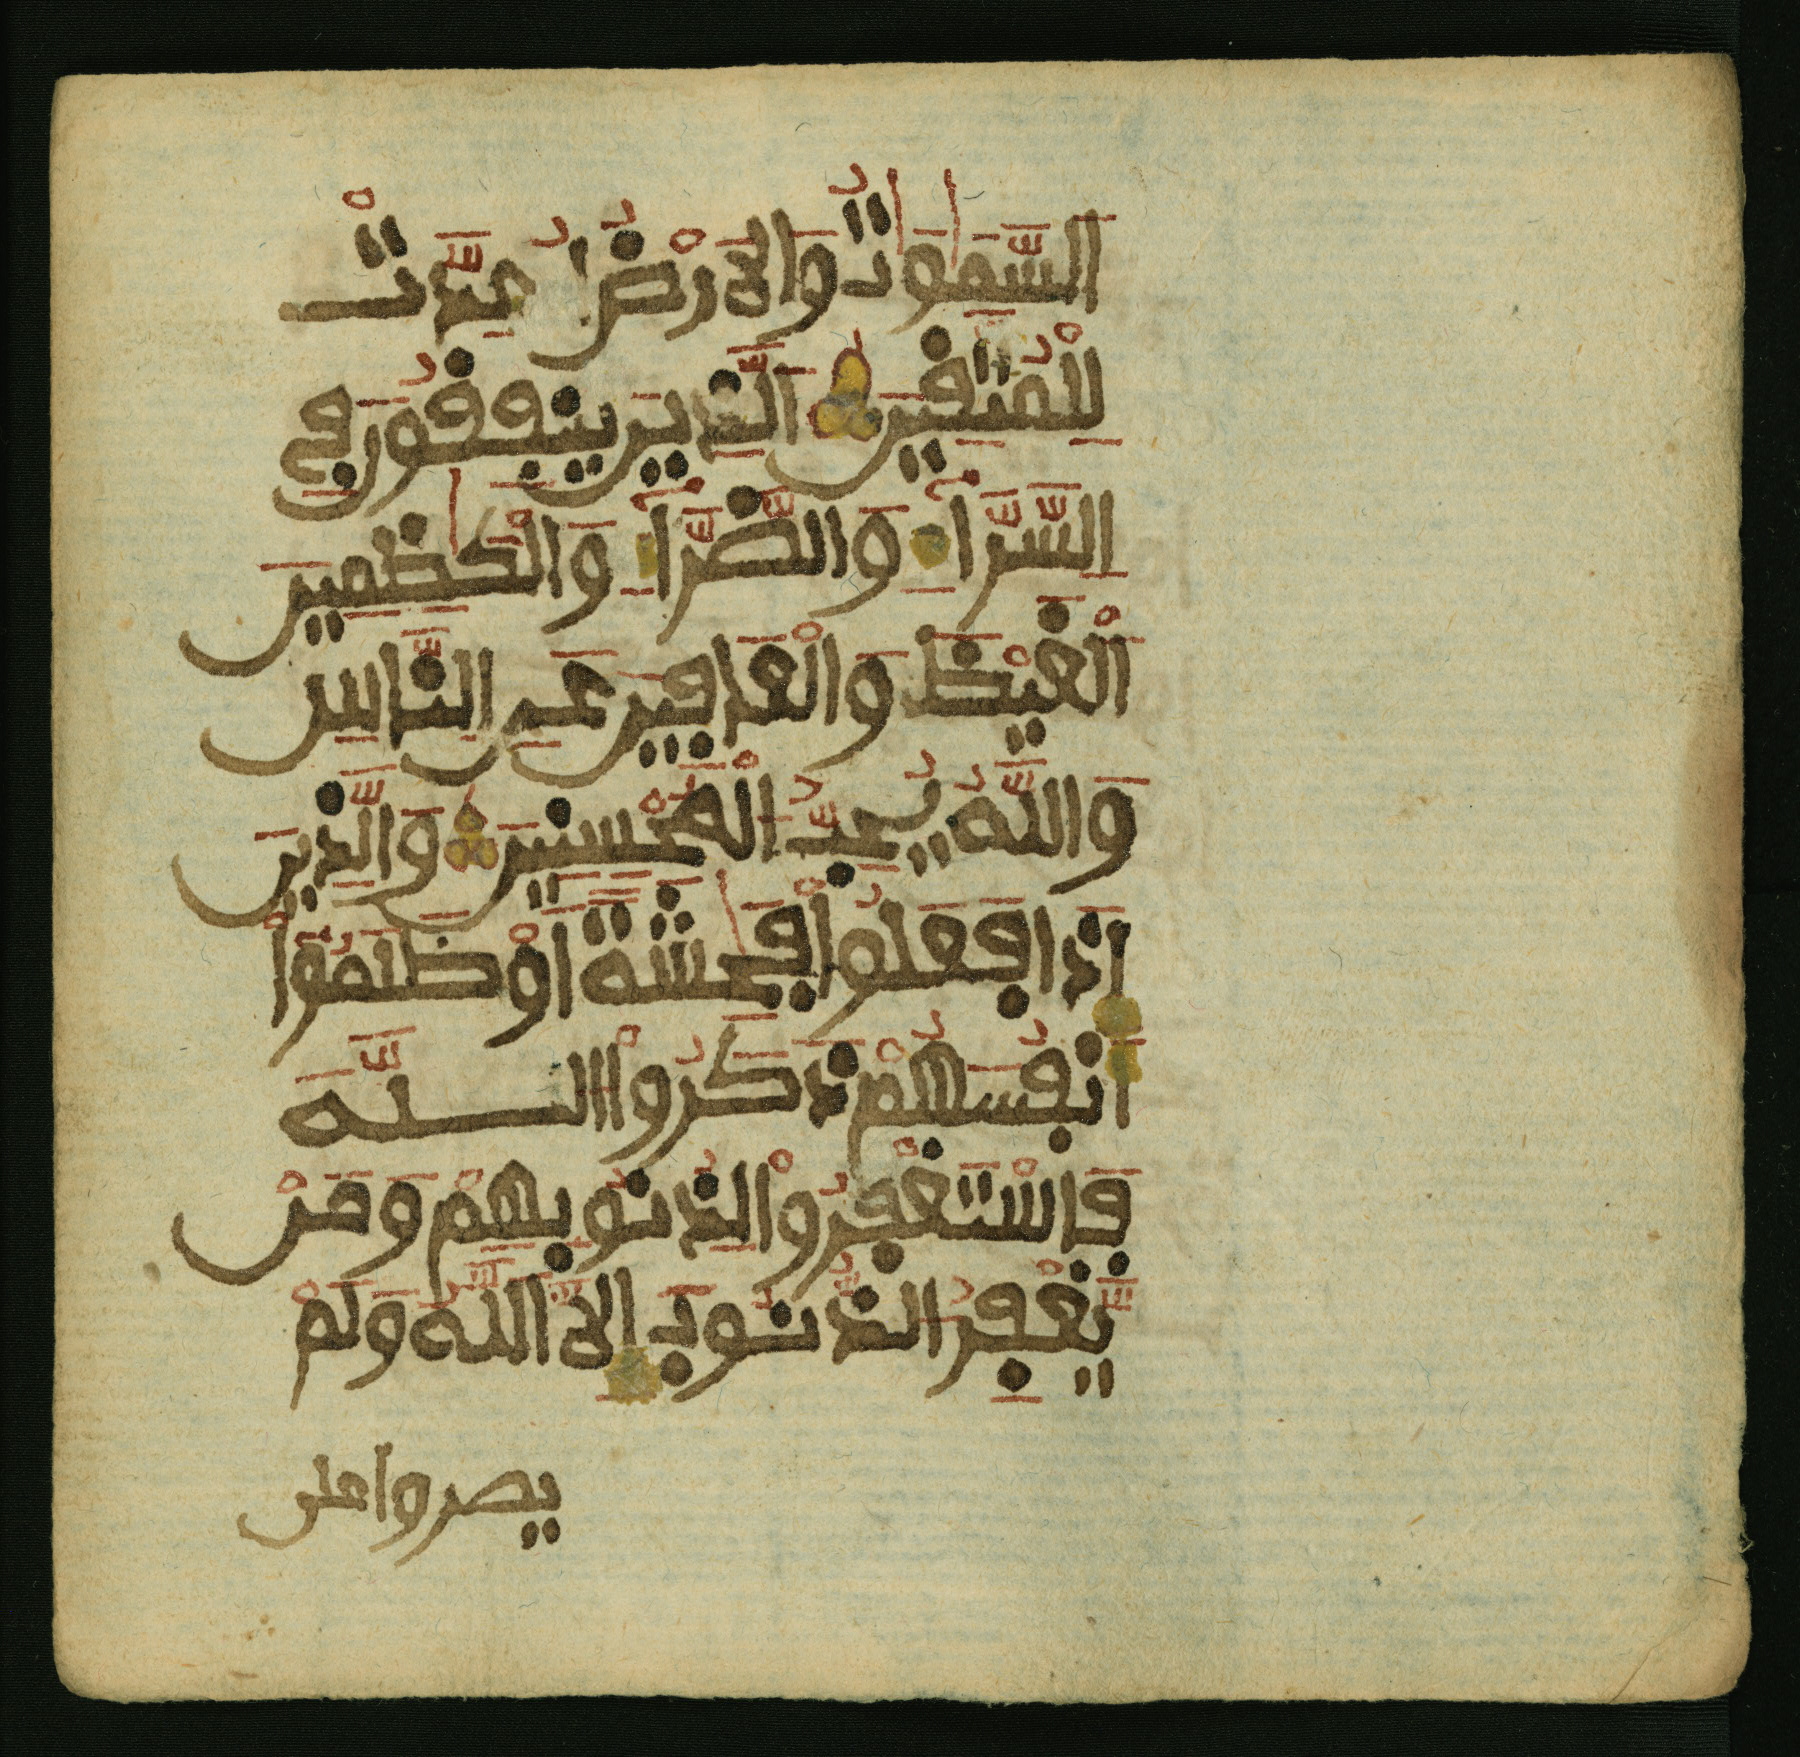 السَّمَٰوَٰتُ وَالَارْضُ أُعِدَّتْ
لِلْمُتَّقِينَ الَّذِينَ يُنفِقُونَ فِي
السَّرَّآءِ وَالضَّرَّآءِ وَالْكَٰظِمِينَ
الْغَيْظَ وَالْعَافِينَ عَنِ النَّاسِ
وَاللَّهُ يُحِبُّ الْمُحْسِنِينَ وَالَّذِينَ
إِذَا فَعَلُواْ فَٰحِشَةً اَوْ ظَلَمُواْ
أَنفُسَهُمْ ذَكَرُواْ اللَّهَ
فَاسْتَغْفَرُواْ لِذُنُوبِهِمْ وَمَنْ
يَّغْفِرُ الذُّنُوبَ إِلَّا اللَّهُ وَلَمْ
يصروا على